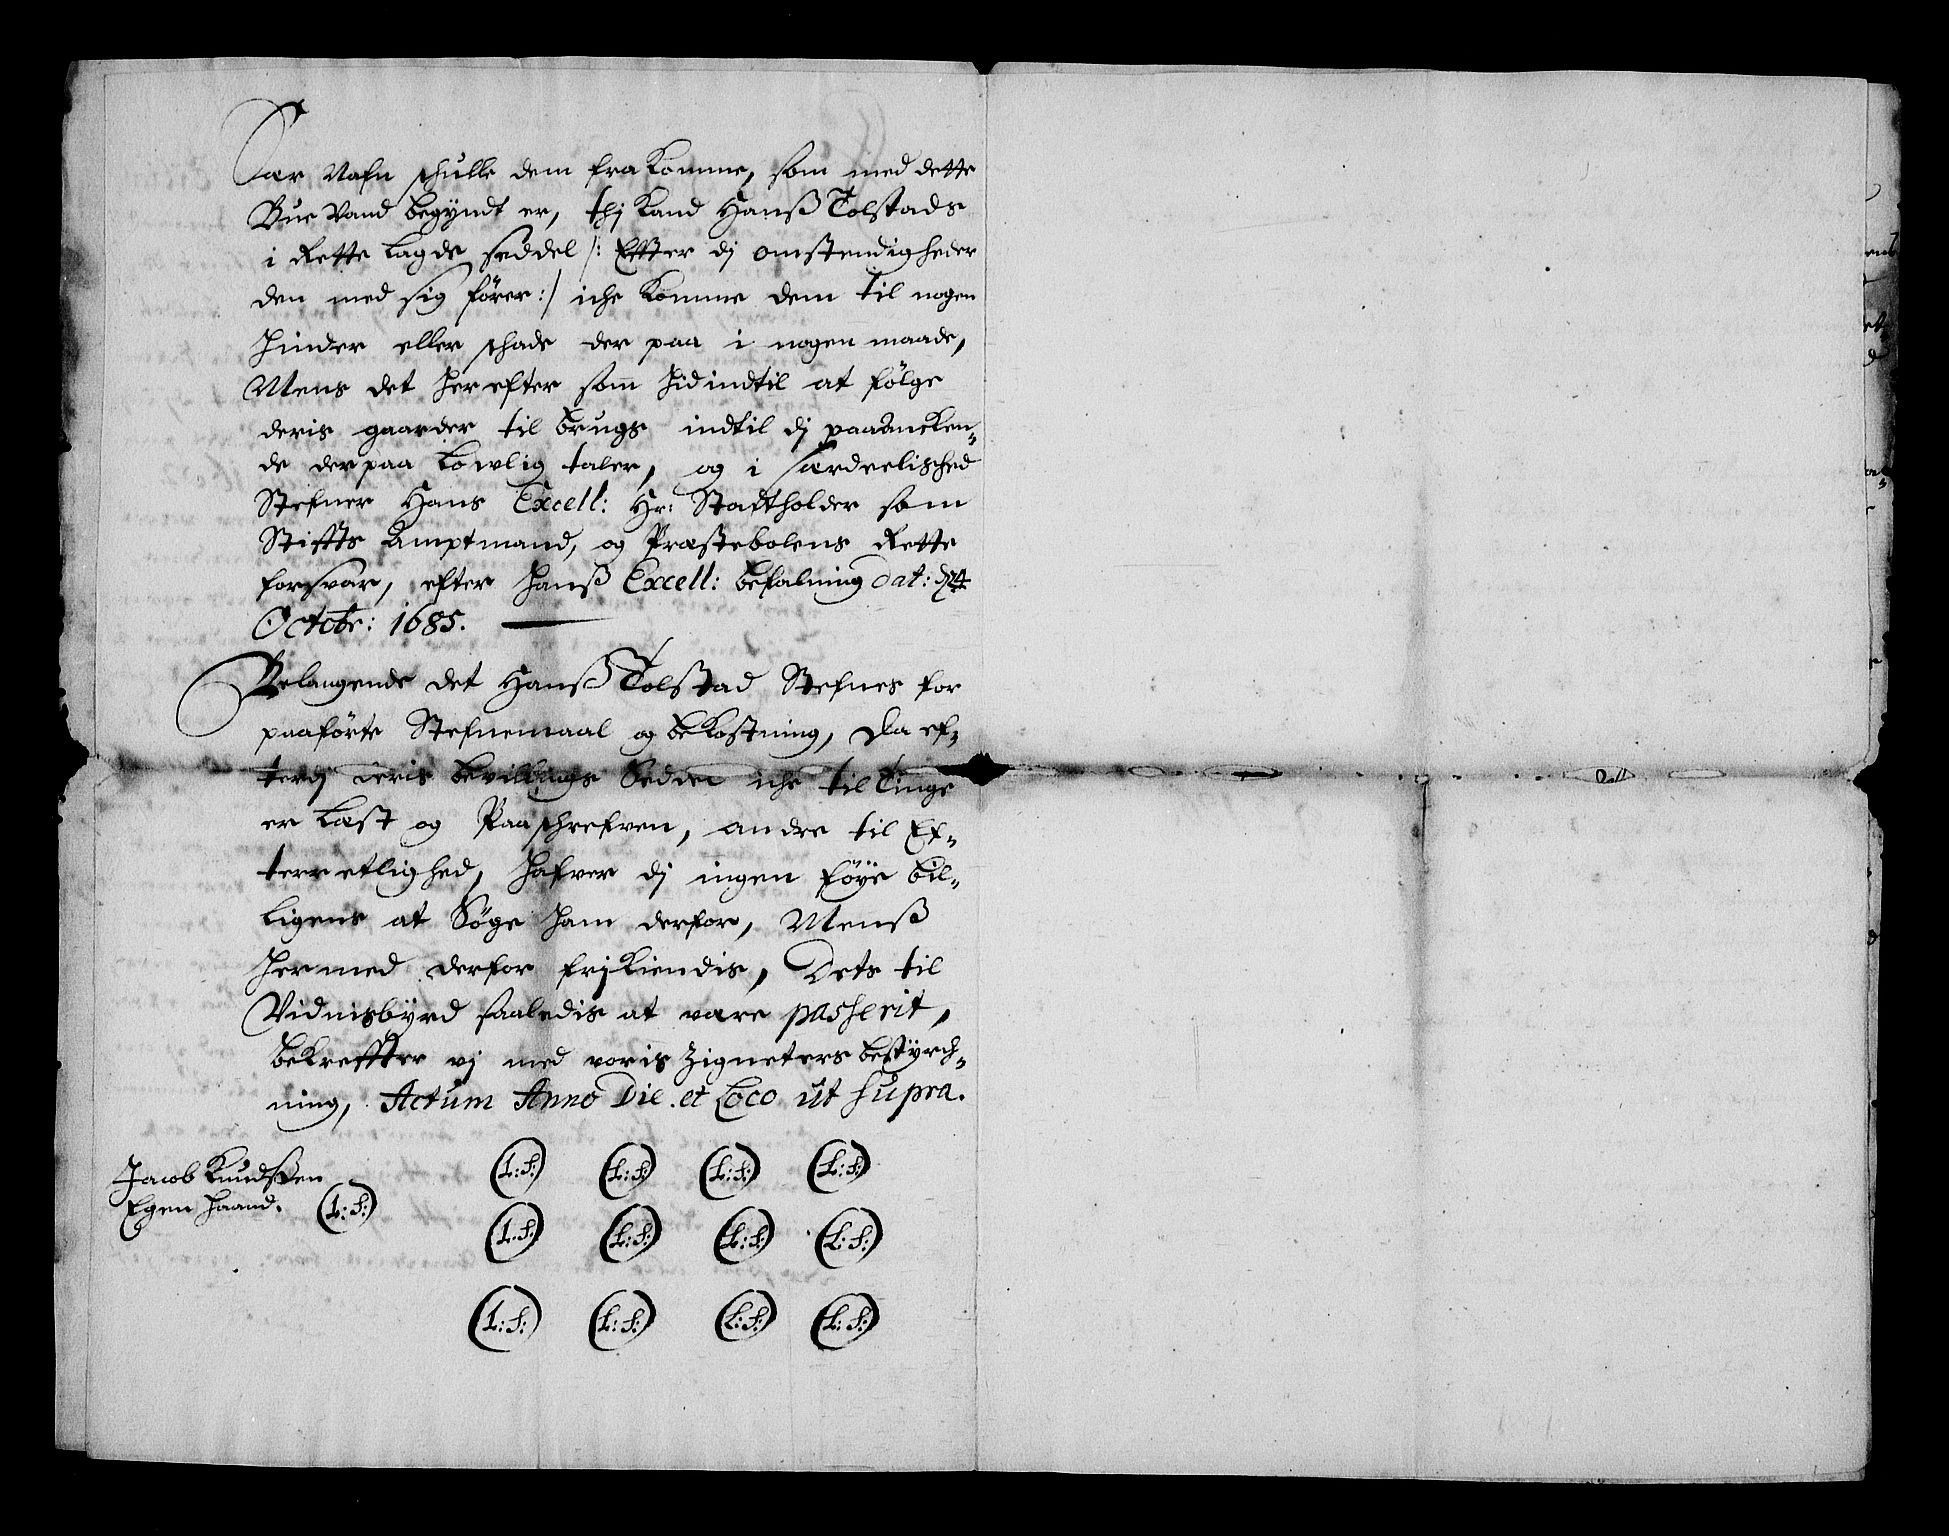 ær Nafn schulle dem fra Komme, som med dette
Bue Vand begyndt er, thj Kand Hanß Tolstads
i Rette lagde seddel /: Effter dj omstendigheder
den med sig fører :/ iche Komme dem til nogen
hinder eller schade der paa i nogen maade,
Mens det her efter som hidindtil at følge
deris gaarder til brugs indtil dj paaancken-
de der paa lowlig taler, og i særdeelished
Stefner Hans Excell: Hr: Stattholder som
Stiffts Amptmand, og Præstebolens Rette
forsvar, efter hanß Excell: befalning dat: d 24
Octobr: 1685.
Belangende det Hanß Tolstad Stefnes for
paaførte Stefnemaal og bekostning, da ef-
terdj deris bevillings Seddel iche til Tinge
er Læst og Paaschrefven, andre til Ef-
terretlighed, hafver dj ingen føye bil-
ligens at Søge ham derfor, Menß
hermed derfor frj Kiendis, Dets til
Vidnisbyrd saaledis at være passerit,
bekreffter vj med voris Zigneters bestyrch-
ning, Actum Anno Die et Loco ut supra.
Jacob Knudßen
Egen haand. (L:S:)
(L:S:) (L:S:) (L:S:) (L:S:)
(L:S:) (L:S:) (L:S:) (L:S:)
(L:S:) (L:S:) (L:S:) (L:S:)